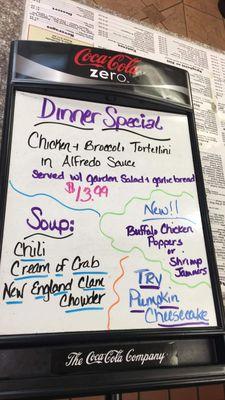 Coca-Cola
zero.
Dinner Special
Chicken + Broccoli Tortellini
in Alfredo Sauce
Served w/ Garden Salad + garlic bread
$13.99
Soup:
Chili
Cream of Crab
New England Clam
Chowder
New!!
Buffalo Chicken
Poppers
or
Shrimp
Jammers
Try
Pumpkin
Cheesecake
The Coca-Cola Company